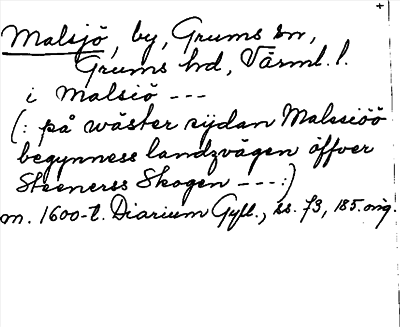 Malsjö, by, Grums sn,
Grums hd, Värml. l.
i Malsiö ---
(: på wäster sijdan Malssiöö
begynness landzvägen öffver
Steenerss Skogen ---:)
m. 1600-t. Diarium Gyll., ss. 73, 185. orig.